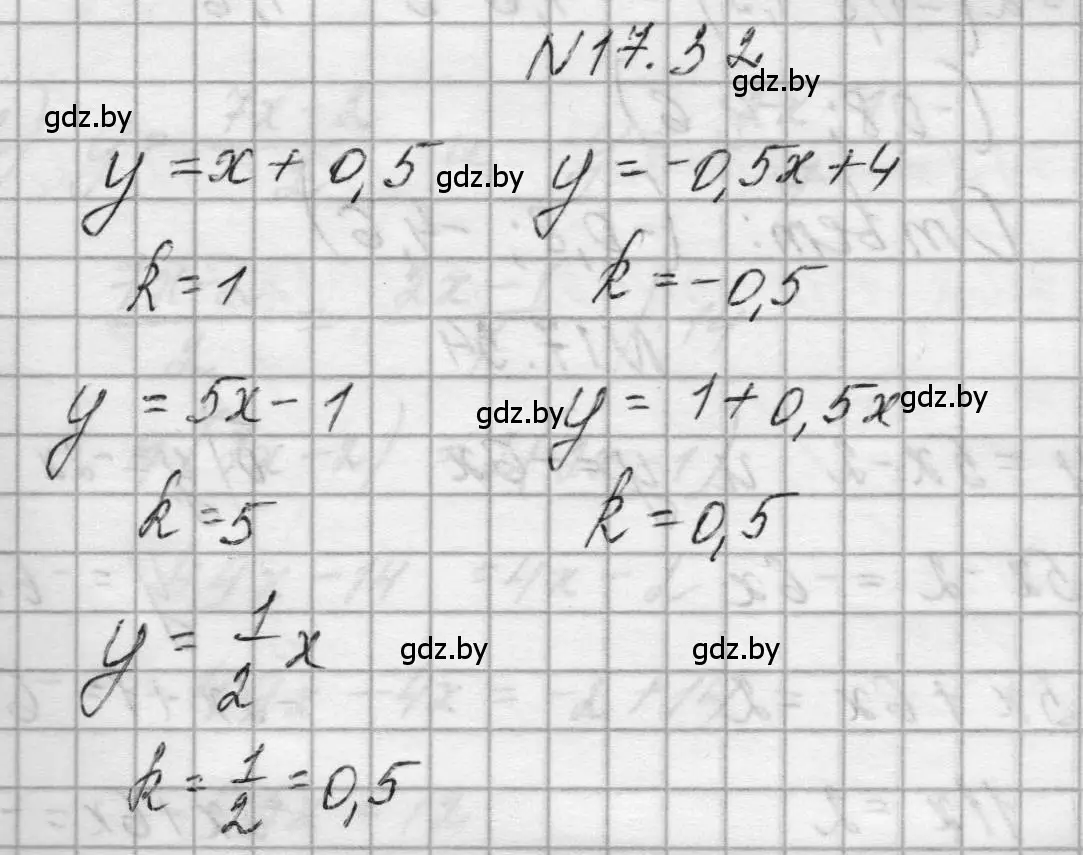 N17.32
gdz.by
y = x + 0,5 gdz.by y = -0,5x + 4
k = 1 k = -0,5
y = 5x - 1 gdz.by y = 1 + 0,5x gdz.by
k = 5 k = 0,5
y = 1/2 x gdz.by gdz.by
k = 1/2 = 0,5